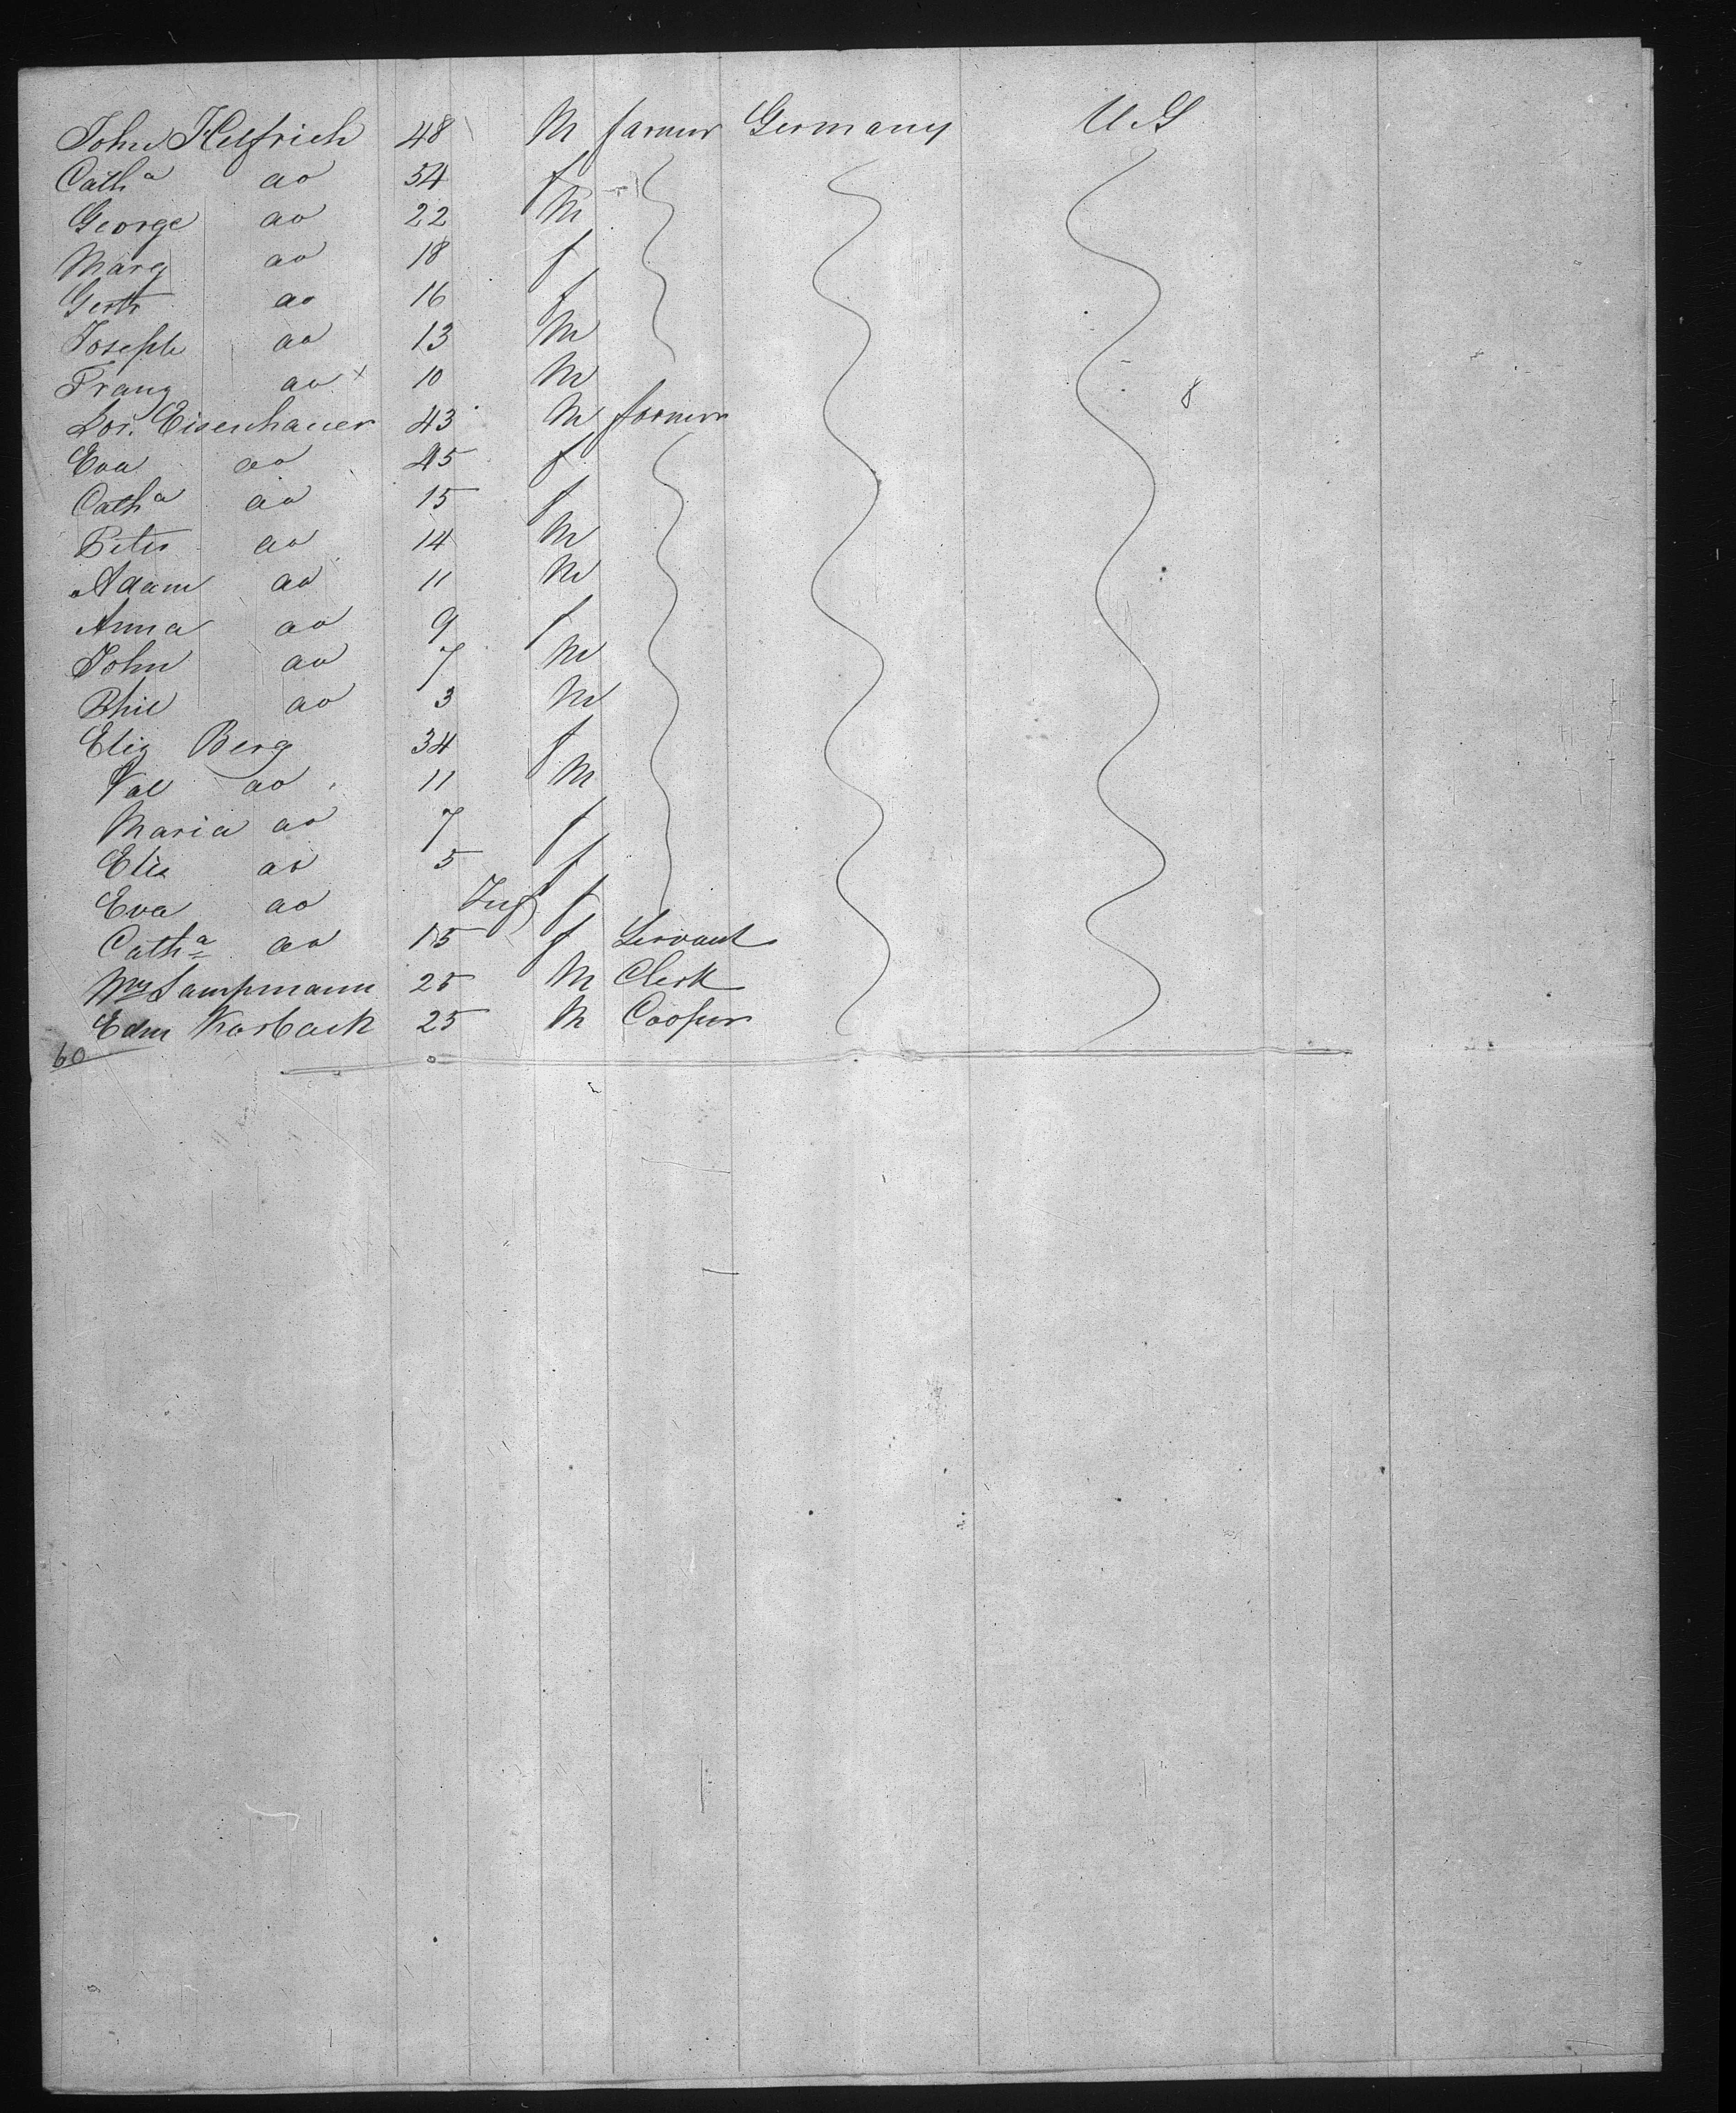 John Helfrich 48 M farmer Germany U.S
Cath a do 54 f
George do 22 M
Marg do 18 f
Gertr do 16 f
Joseph do 13 M
Franz do x 10 M
Lor. Eisenhauer 43 M farmer
Eva do 45 f
Cath a do 15 f
Peter do 14 M
Adam do 11 M
Anna do 9 f
John do 7 M
Phil do 3 M
Eliz Berg 34 f
Val do 11 M
Maria do 7 f
Elis do 5 f
Eva do Inf f
Cath a do 15 f Servant
25 M Clerk
Edm 25 M Cooper
60
8